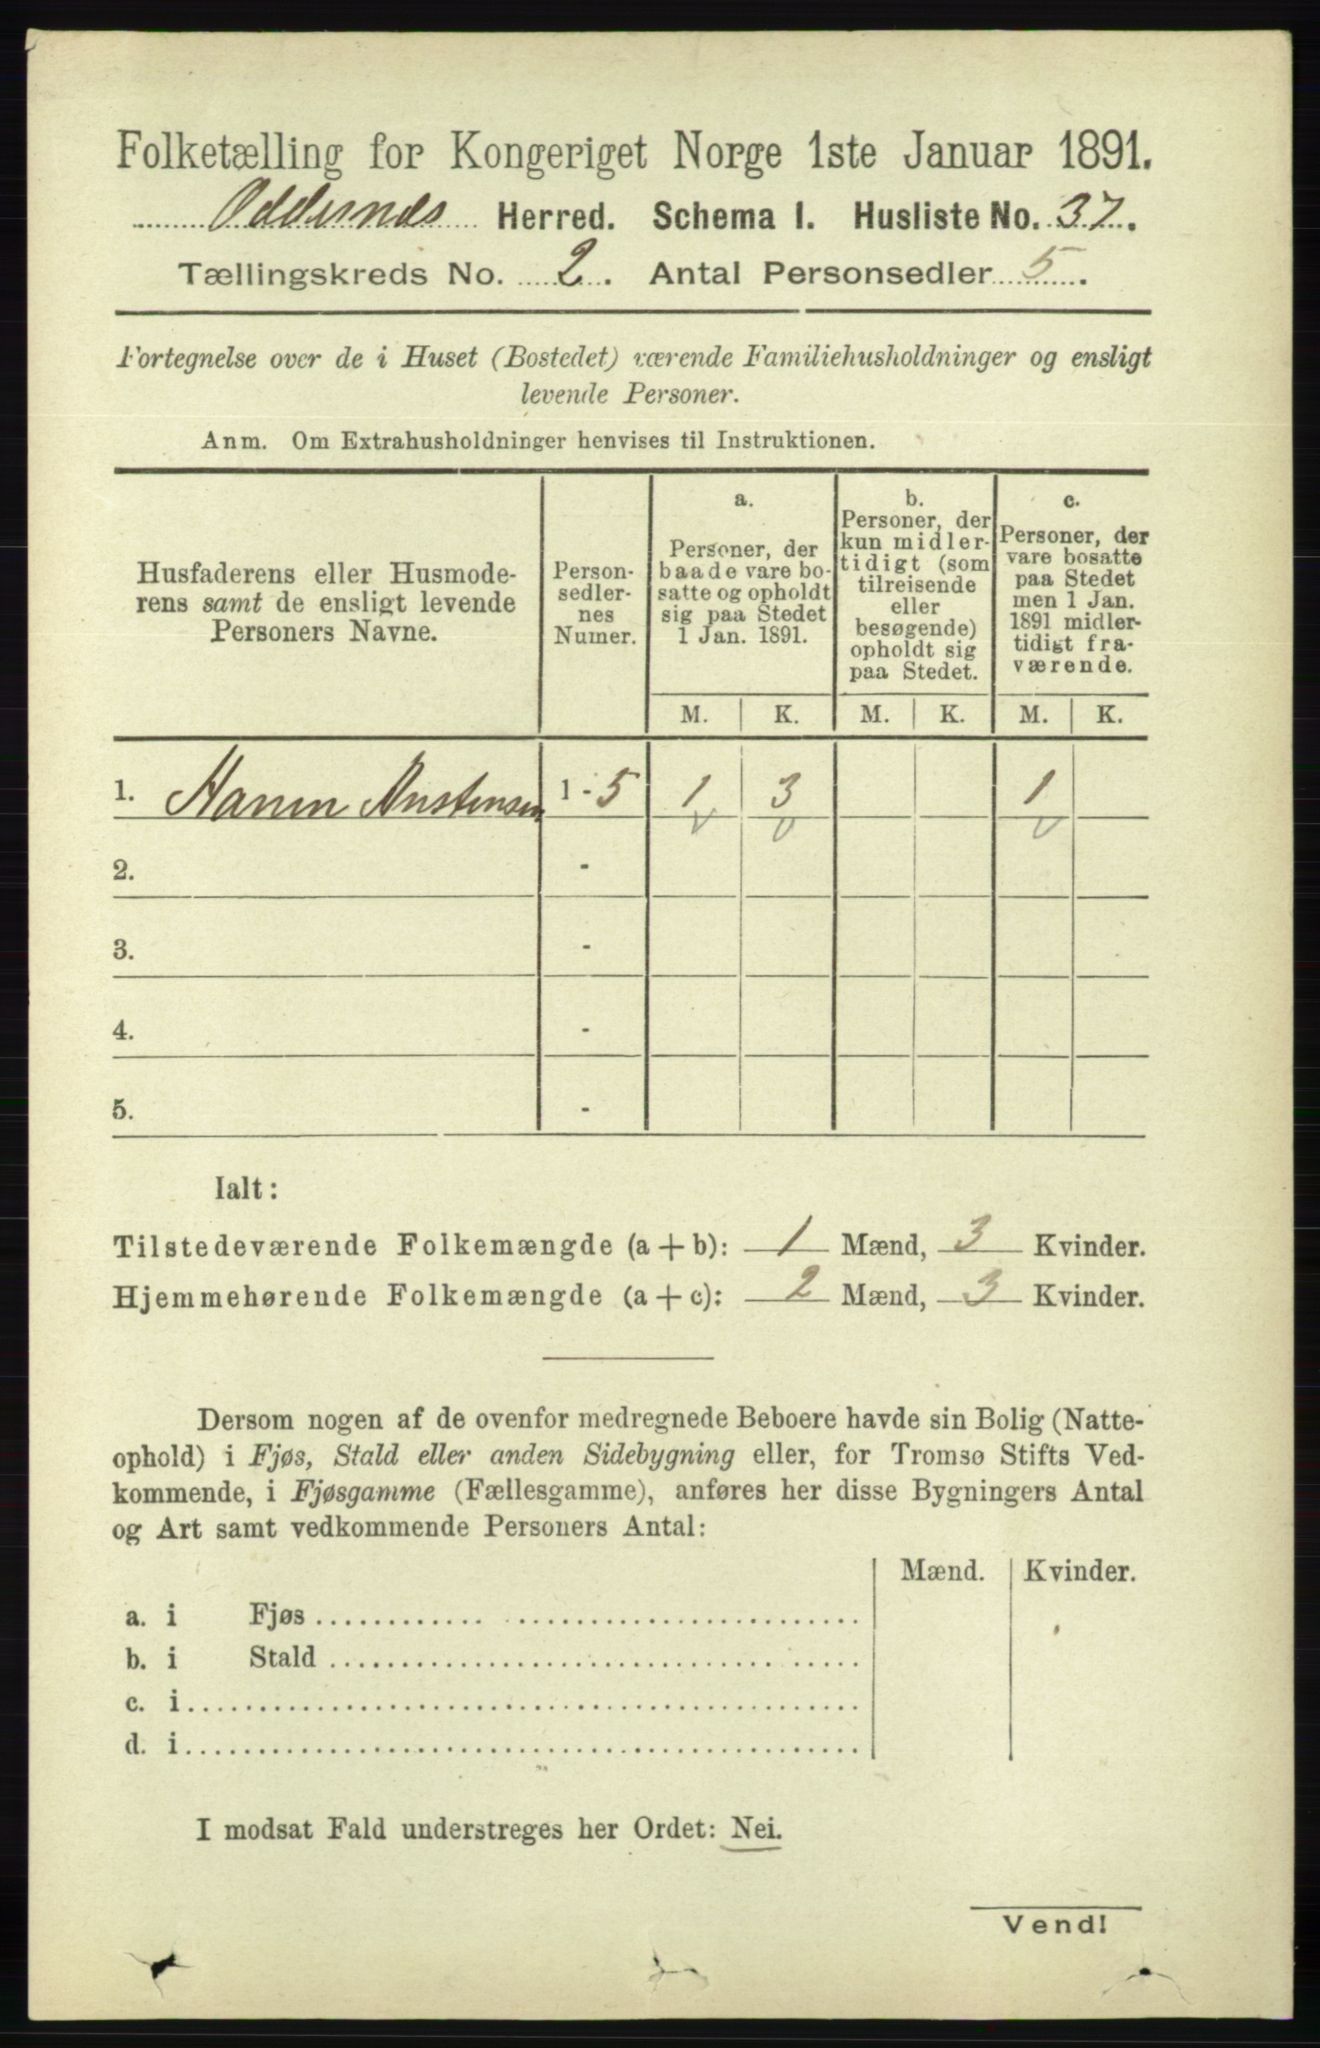 Folketælling for Kongeriget Norge 1ste Januar 1891.
Oddernes Herred. Schema I. Husliste No. 37.
Tællingskreds No. 2. Antal Personsedler 5.
Fortegnelse over de i Huset (Bostedet) værende Familiehusholdninger og ensligt
levende Personer.
Anm. Om Extrahusholdninger henvises til Instruktionen.
Husfaderens eller Husmode-
rens samt de ensligt levende
Personers Navne.
Person-
sedler-
nes
Numer.
a.
Personer, der
baade vare bo-
satte og opholdt
sig paa Stedet
1 Jan. 1891.
b.
Personer, der
kun midler-
tidigt (som
tilreisende
eller
besøgende)
opholdt sig
paa Stedet.
c.
Personer, der
vare bosatte
paa Stedet
men 1 Jan.
1891 midler-
tidigt fra-
værende.
M. K. M. K. M. K.
1. 1 - 5 1 3 1
2. -
3. -
4. -
5. -
Ialt:
Tilstedeværende Folkemængde (a + b): 1 Mænd, 3 Kvinder.
Hjemmehørende Folkemængde (a + c): 2 Mænd, 3 Kvinder.
Dersom nogen af de ovenfor medregnede Beboere havde sin Bolig (Natte-
ophold) i Fjøs, Stald eller anden Sidebygning eller, for Tromsø Stifts Ved-
kommende, i Fjøsgamme (Fællesgamme), anføres her disse Bygningers Antal
og Art samt vedkommende Personers Antal:
Mænd. Kvinder.
a. i Fjøs
b. i Stald
c. i
d. i
I modsat Fald understreges her Ordet: Nei.
Vend!